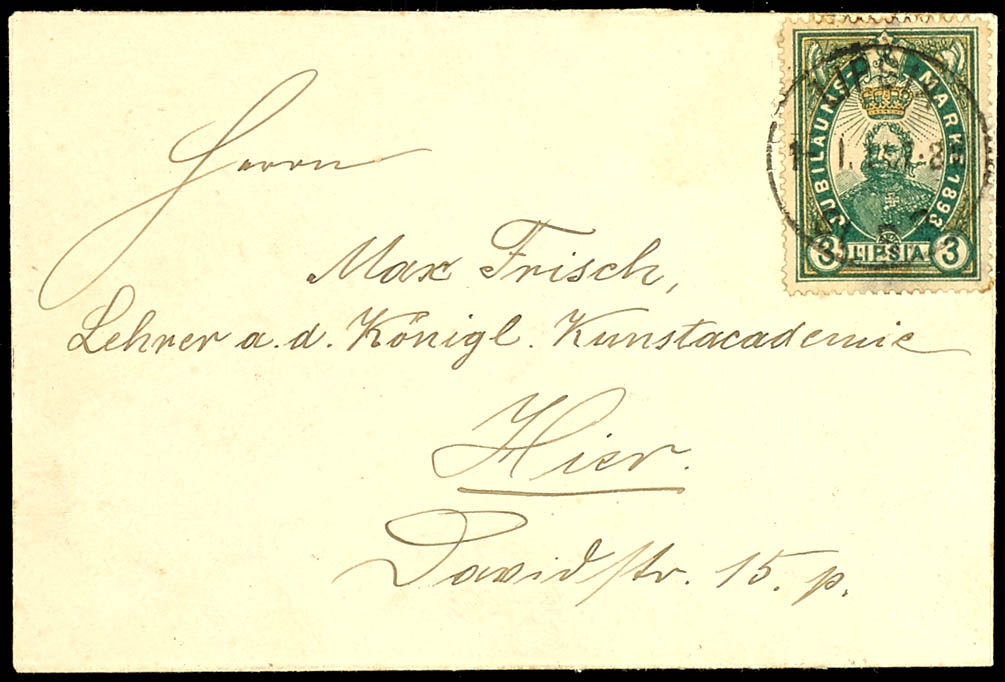 JUBILÄUMS-MARKE 1893
3 LIPSIA 3
Herrn
Max Frisch,
Lehrer a. d. Königl. Kunstacademie
Hier.
Davidstr. 15. p.